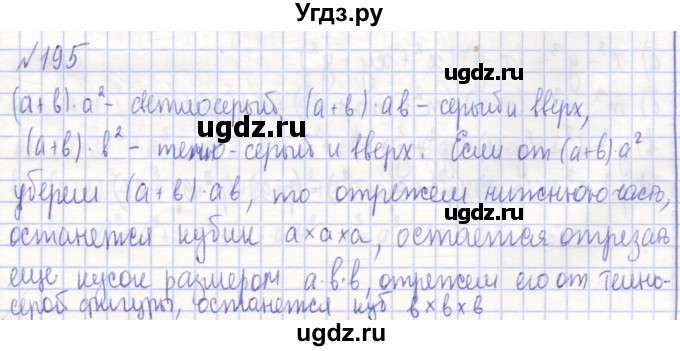 Угдз.ру
№195
ugdz.ru
(a+b)·a² - светлосерый (a+b)·ab - серый и вверх,
ugdz.ru
(a+b)·b² - темно-серый и вверх. Если от (a+b)·a²
уберем (a+b)·ab, то отрежем нижнюю часть,
останется кубик a×a×a, остается отрезать
еще кусок размером a·b·b, отрежем его от темно-
серой фигуры, останется куб b×b×b
ugdz.ru
ugdz.ru